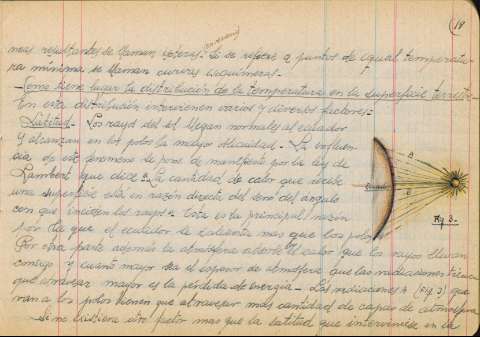 18
neas resultantes se llaman isóteras. Si se refiere a puntos de igual temperatu-
ra mínima se llaman curvas isoquímeras.-
-Como tiene lugar la distribución de la temperatura en la superficie terrestre-
En esta distribución intervienen varios y diversos factores.-
Latitud.- Los rayos del sol llegan normales al ecuador
y alcanzan en los polos la mayor oblicuidad.- La influen-
cia de este fenómeno se pone de manifiesto por la ley de
Lambert que dice: "La cantidad de calor que recibe
una superficie está en razón directa del seno del ángulo
con que inciden los rayos". Esta es la principal razón
por la que el ecuador se calienta mas que los polos.
Por otra parte además la atmósfera absorbe el calor que los rayos llevan
consigo y cuanto mayor sea el espesor de atmósfera que las radiaciones
que atravesar mayor es la pérdida de energía.- Las radiaciones A (Fig. 3) que
van a los polos tienen que atravesar más cantidad de capas de atmósfera
Si no existiera otro factor mas que la latitud que interviniese en la
A
B
Fig 3.-